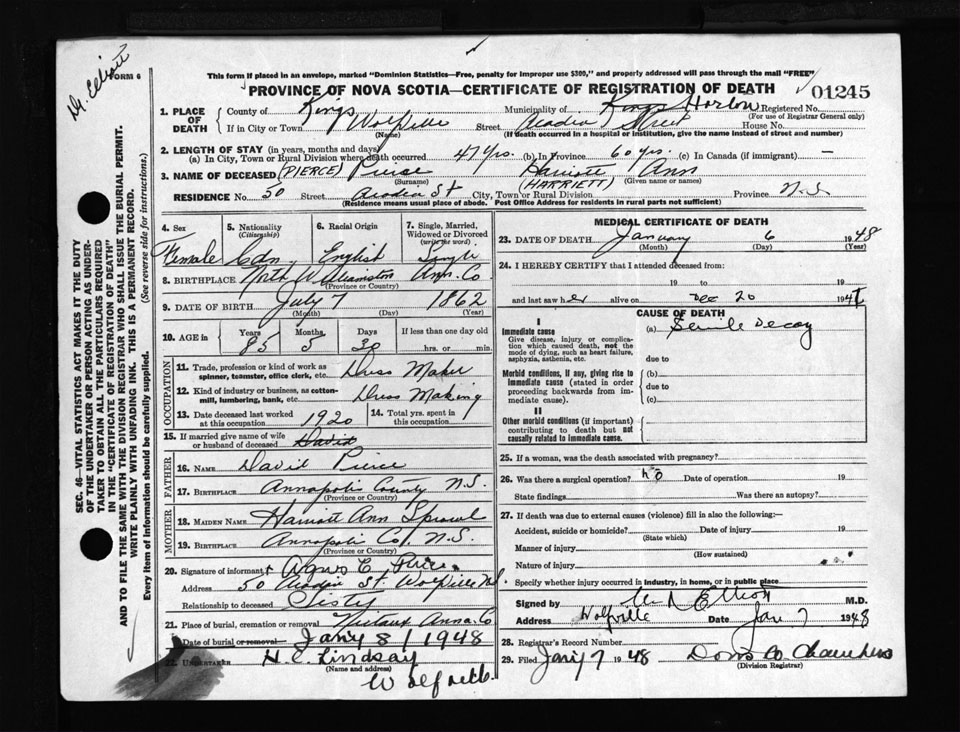 Dr. Elliott
FORM 6
This form if placed in an envelope, marked "Dominion Statistics—Free, penalty for improper use $300," and properly addressed will pass through the mail "FREE"
PROVINCE OF NOVA SCOTIA—CERTIFICATE OF REGISTRATION OF DEATH
01245
1. PLACE OF DEATH County of Kings Municipality of Kings Horton Registered No.
(For use of Registrar General only)
If in City or Town Wolfville Street Acadia Street House No.
(Name) (If death occurred in a hospital or institution, give the name instead of street and number)
2. LENGTH OF STAY (in years, months and days)
(a) In City, Town or Rural Division where death occurred 47 yrs. (b) In Province 60 yrs. (c) In Canada (if immigrant) —
3. NAME OF DECEASED (PIERCE) Pierce Harriott Ann
(Surname) (HARRIETT) (Given name or names)
RESIDENCE No. 50 Street Acadia St City, Town or Rural Division Province N.S
(Residence means usual place of abode. Post Office Address for residents in rural parts not sufficient)
4. Sex 5. Nationality (Citizenship) 6. Racial Origin 7. Single, Married, Widowed or Divorced (write the word)
Female Cdn. English Single
8. BIRTHPLACE North Williamston Ann. Co
(Province or Country)
9. DATE OF BIRTH July 7 1862
(Month) (Day) (Year)
10. AGE in Years Months Days If less than one day old
85 5 30 hrs. or min.
OCCUPATION
11. Trade, profession or kind of work as spinner, teamster, office clerk, etc. Dress Maker
12. Kind of industry or business, as cotton-mill, lumbering, bank, etc. Dress Making
13. Date deceased last worked at this occupation 1920 14. Total yrs. spent in this occupation
15. If married give name of wife or husband of deceased David
FATHER
16. NAME David Pierce
17. BIRTHPLACE Annapolis County N.S.
(Province or Country)
MOTHER
18. MAIDEN NAME Harriott Ann Sproul
19. BIRTHPLACE Annapolis Co. N.S.
(Province or Country)
20. Signature of informant Agnes C. Pierce
Address 50 Acadia St. Wolfville NS
Relationship to deceased Sister
21. Place of burial, cremation or removal Nictaux Anna. Co
Date of burial or removal Jany 8/1948
22. UNDERTAKER H. E. Lindsay
(Name and address)
Wolfville
MEDICAL CERTIFICATE OF DEATH
23. DATE OF DEATH January 6 1948
(Month) (Day) (Year)
24. I HEREBY CERTIFY that I attended deceased from:
19 to 19
and last saw her alive on Dec 20 1947
CAUSE OF DEATH
I
Immediate cause (a) Senile Decay
Give disease, injury or complication which caused death, not the mode of dying, such as heart failure, asphyxia, asthenia, etc. due to
Morbid conditions, if any, giving rise to immediate cause (stated in order proceeding backwards from immediate cause). (b)
due to
(c)
II
Other morbid conditions (if important) contributing to death but not causally related to immediate cause.
25. If a woman, was the death associated with pregnancy?
26. Was there a surgical operation? no Date of operation 19
State findings Was there an autopsy?
27. If death was due to external causes (violence) fill in also the following:—
Accident, suicide or homicide? Date of injury 19
(State which)
Manner of injury
(How sustained)
Nature of injury
Specify whether injury occurred in industry, in home, or in public place
Signed by Elliott M.D.
Wolfville Date Jan. 7 1948
28. Registrar's Record Number
29. Filed Jany 7 1948 Chambers
(Division Registrar)
SEC. 46—VITAL STATISTICS ACT MAKES IT THE DUTY
OF THE UNDERTAKER OR PERSON ACTING AS UNDER-
TAKER TO OBTAIN ALL THE PARTICULARS REQUIRED
IN THE "CERTIFICATE OF REGISTRATION OF DEATH"
AND TO FILE THE SAME WITH THE DIVISION REGISTRAR WHO SHALL ISSUE THE BURIAL PERMIT.
WRITE PLAINLY WITH UNFADING INK. THIS IS A PERMANENT RECORD.
Every item of Information should be carefully supplied. (See reverse side for instructions.)